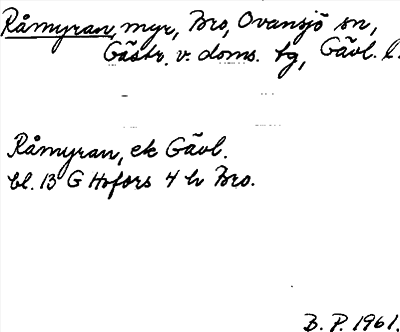 Råmyran, myr, Bro, Ovansjö sn,
Gästr. v. doms. tg, Gävl. l.
Råmyran, ek Gävl.
bl. 13 G Hofors 4 h Bro.
B. P. 1961.